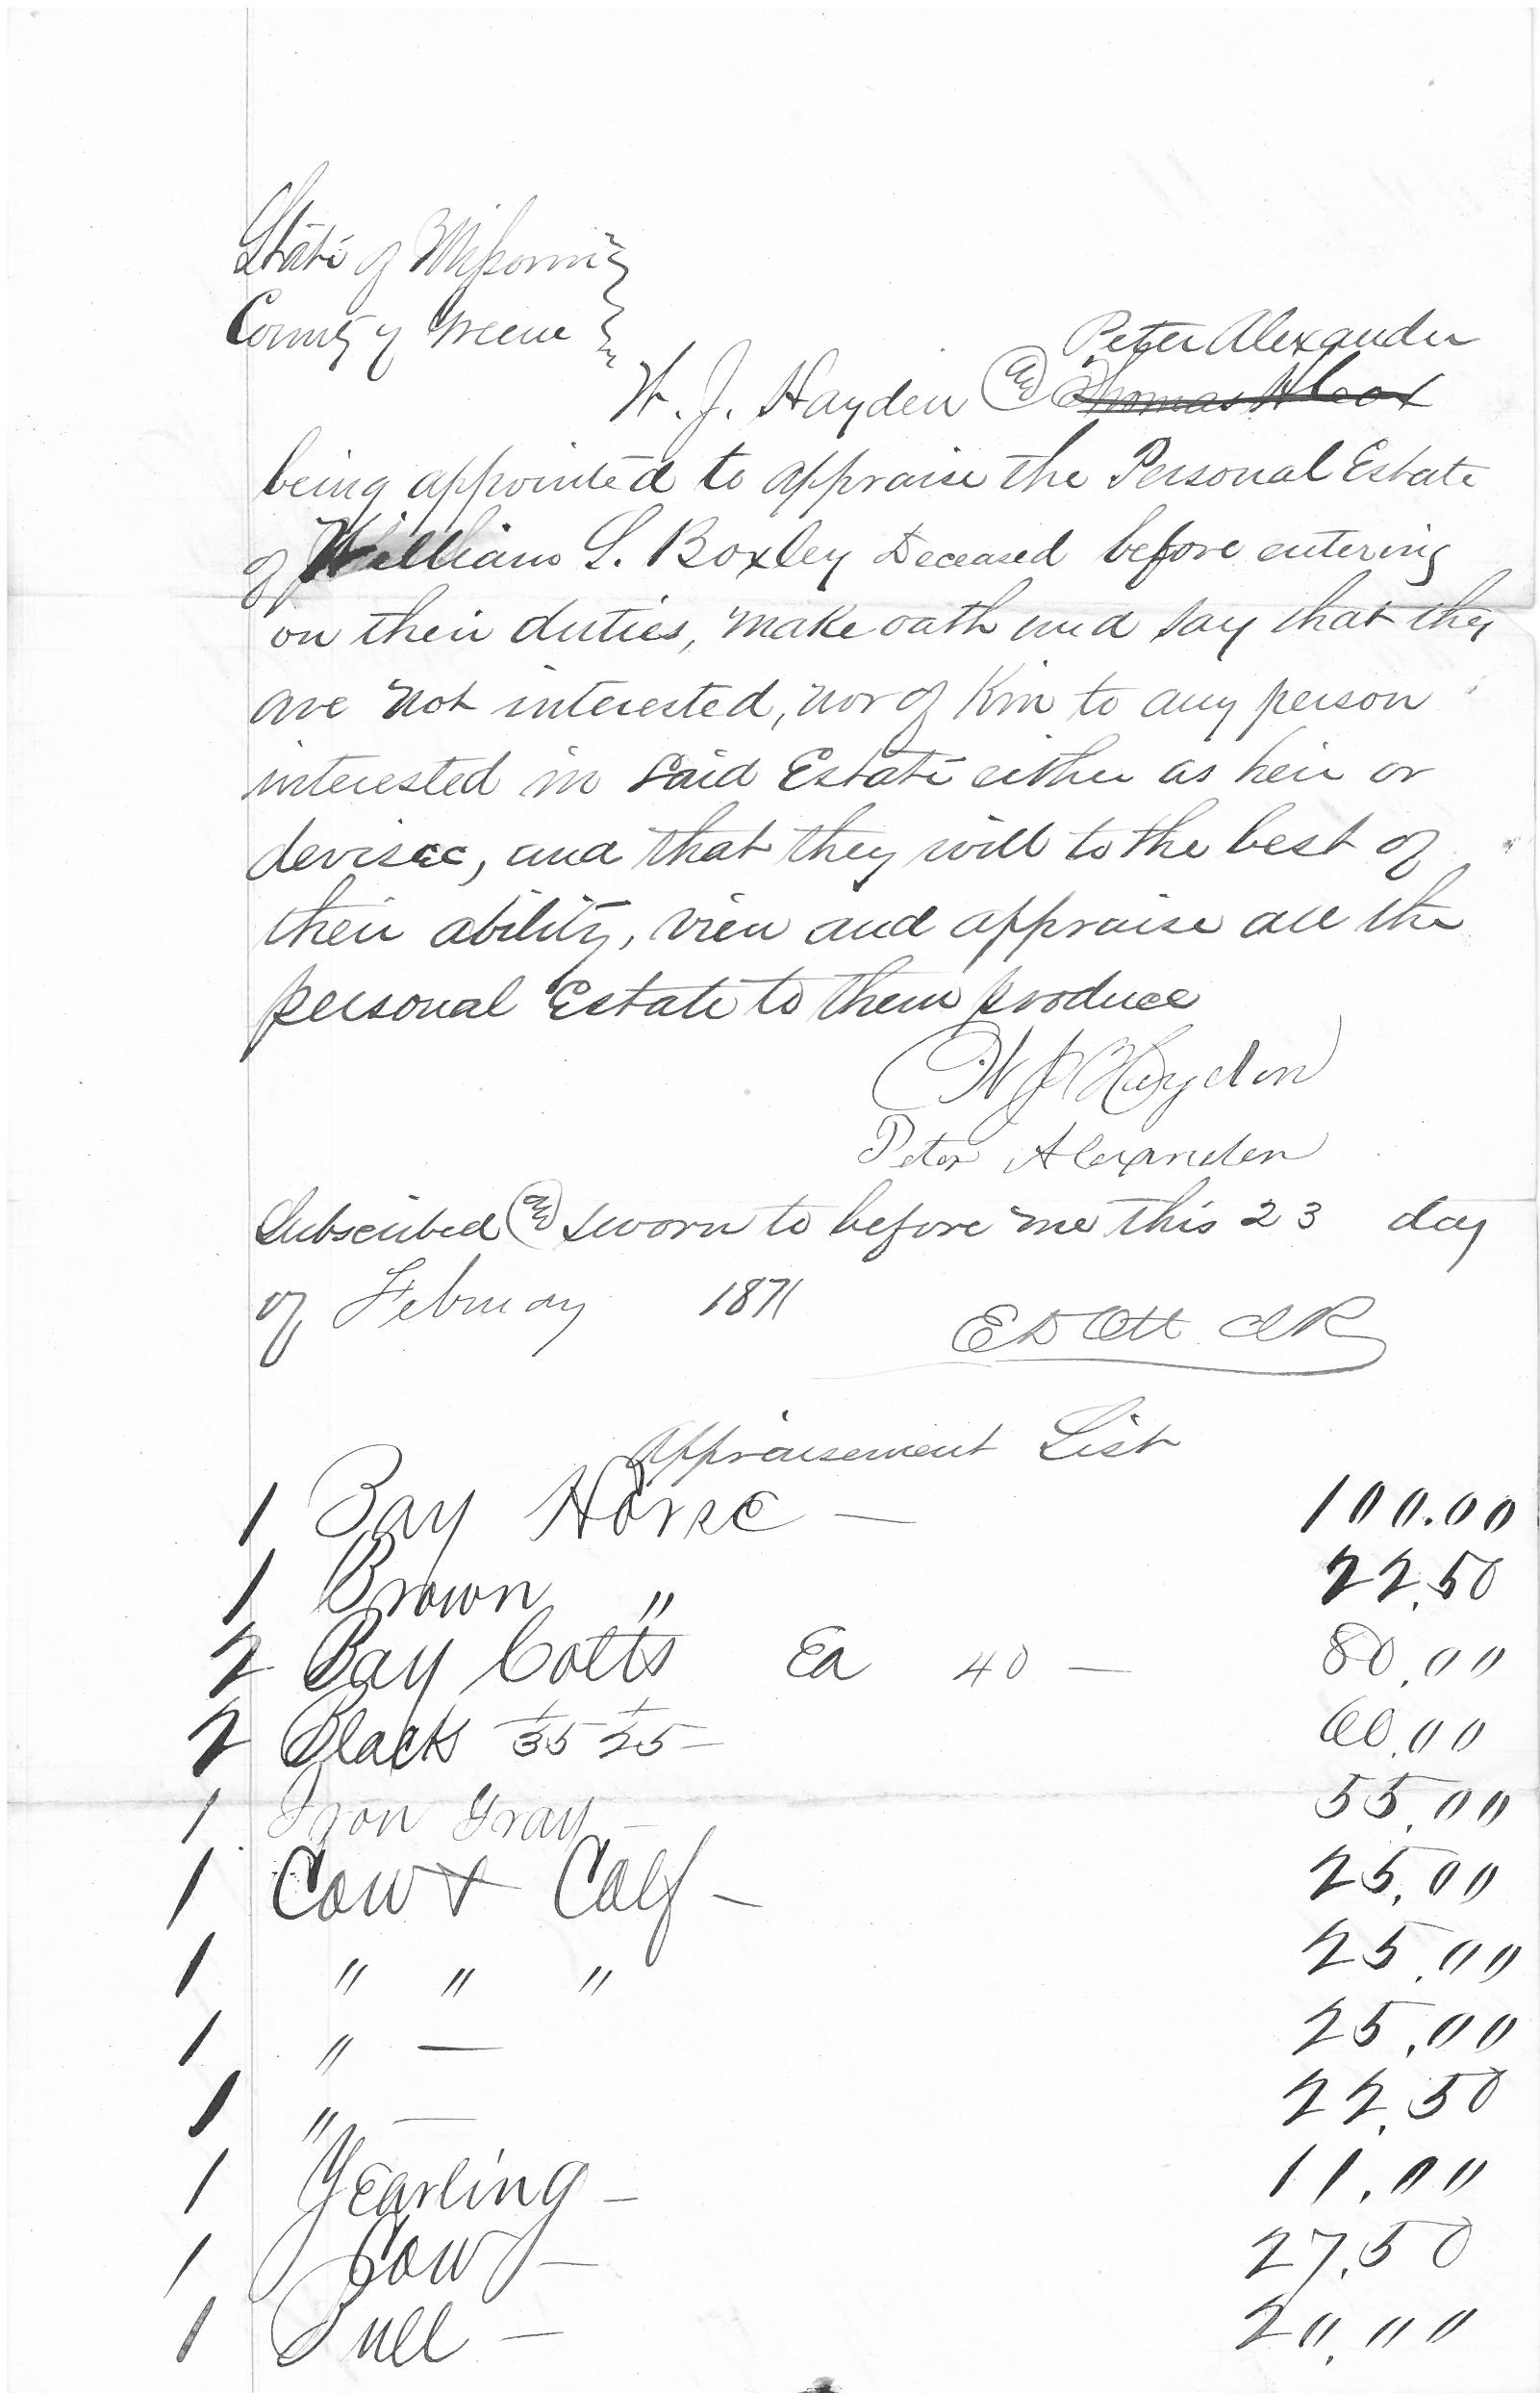 State of Missouri
County of Greene
Peter Alexander
W. J. Hayden and Thomas H Cox
being appointed to appraise the Personal Estate
of William L. Boxley Deceased before entering
on their duties, make oath and say that they
are not interested, nor of Kin to any person
interested in said Estate either as heir or
devisee, and that they will to the best of
their ability, view and appraise all the
personal Estate to them produce
W J Haydon
Peter Alexander
Subscribed and sworn to before me this 23 day
of February 1871
E D Ott
Appraisement List
1 Bay Horse — 100.00
1 Brown " 22.50
2 Bay Colts Ea 40 — 80.00
2 Black 1/35 1/25 — 60.00
1 Iron Gray — 55.00
1 Cow & Calf — 25.00
1 " " " 25.00
1 " — 25.00
1 " — 22.50
1 Yearling — 11.00
1 Cow — 27.50
1 Bull — 20.00